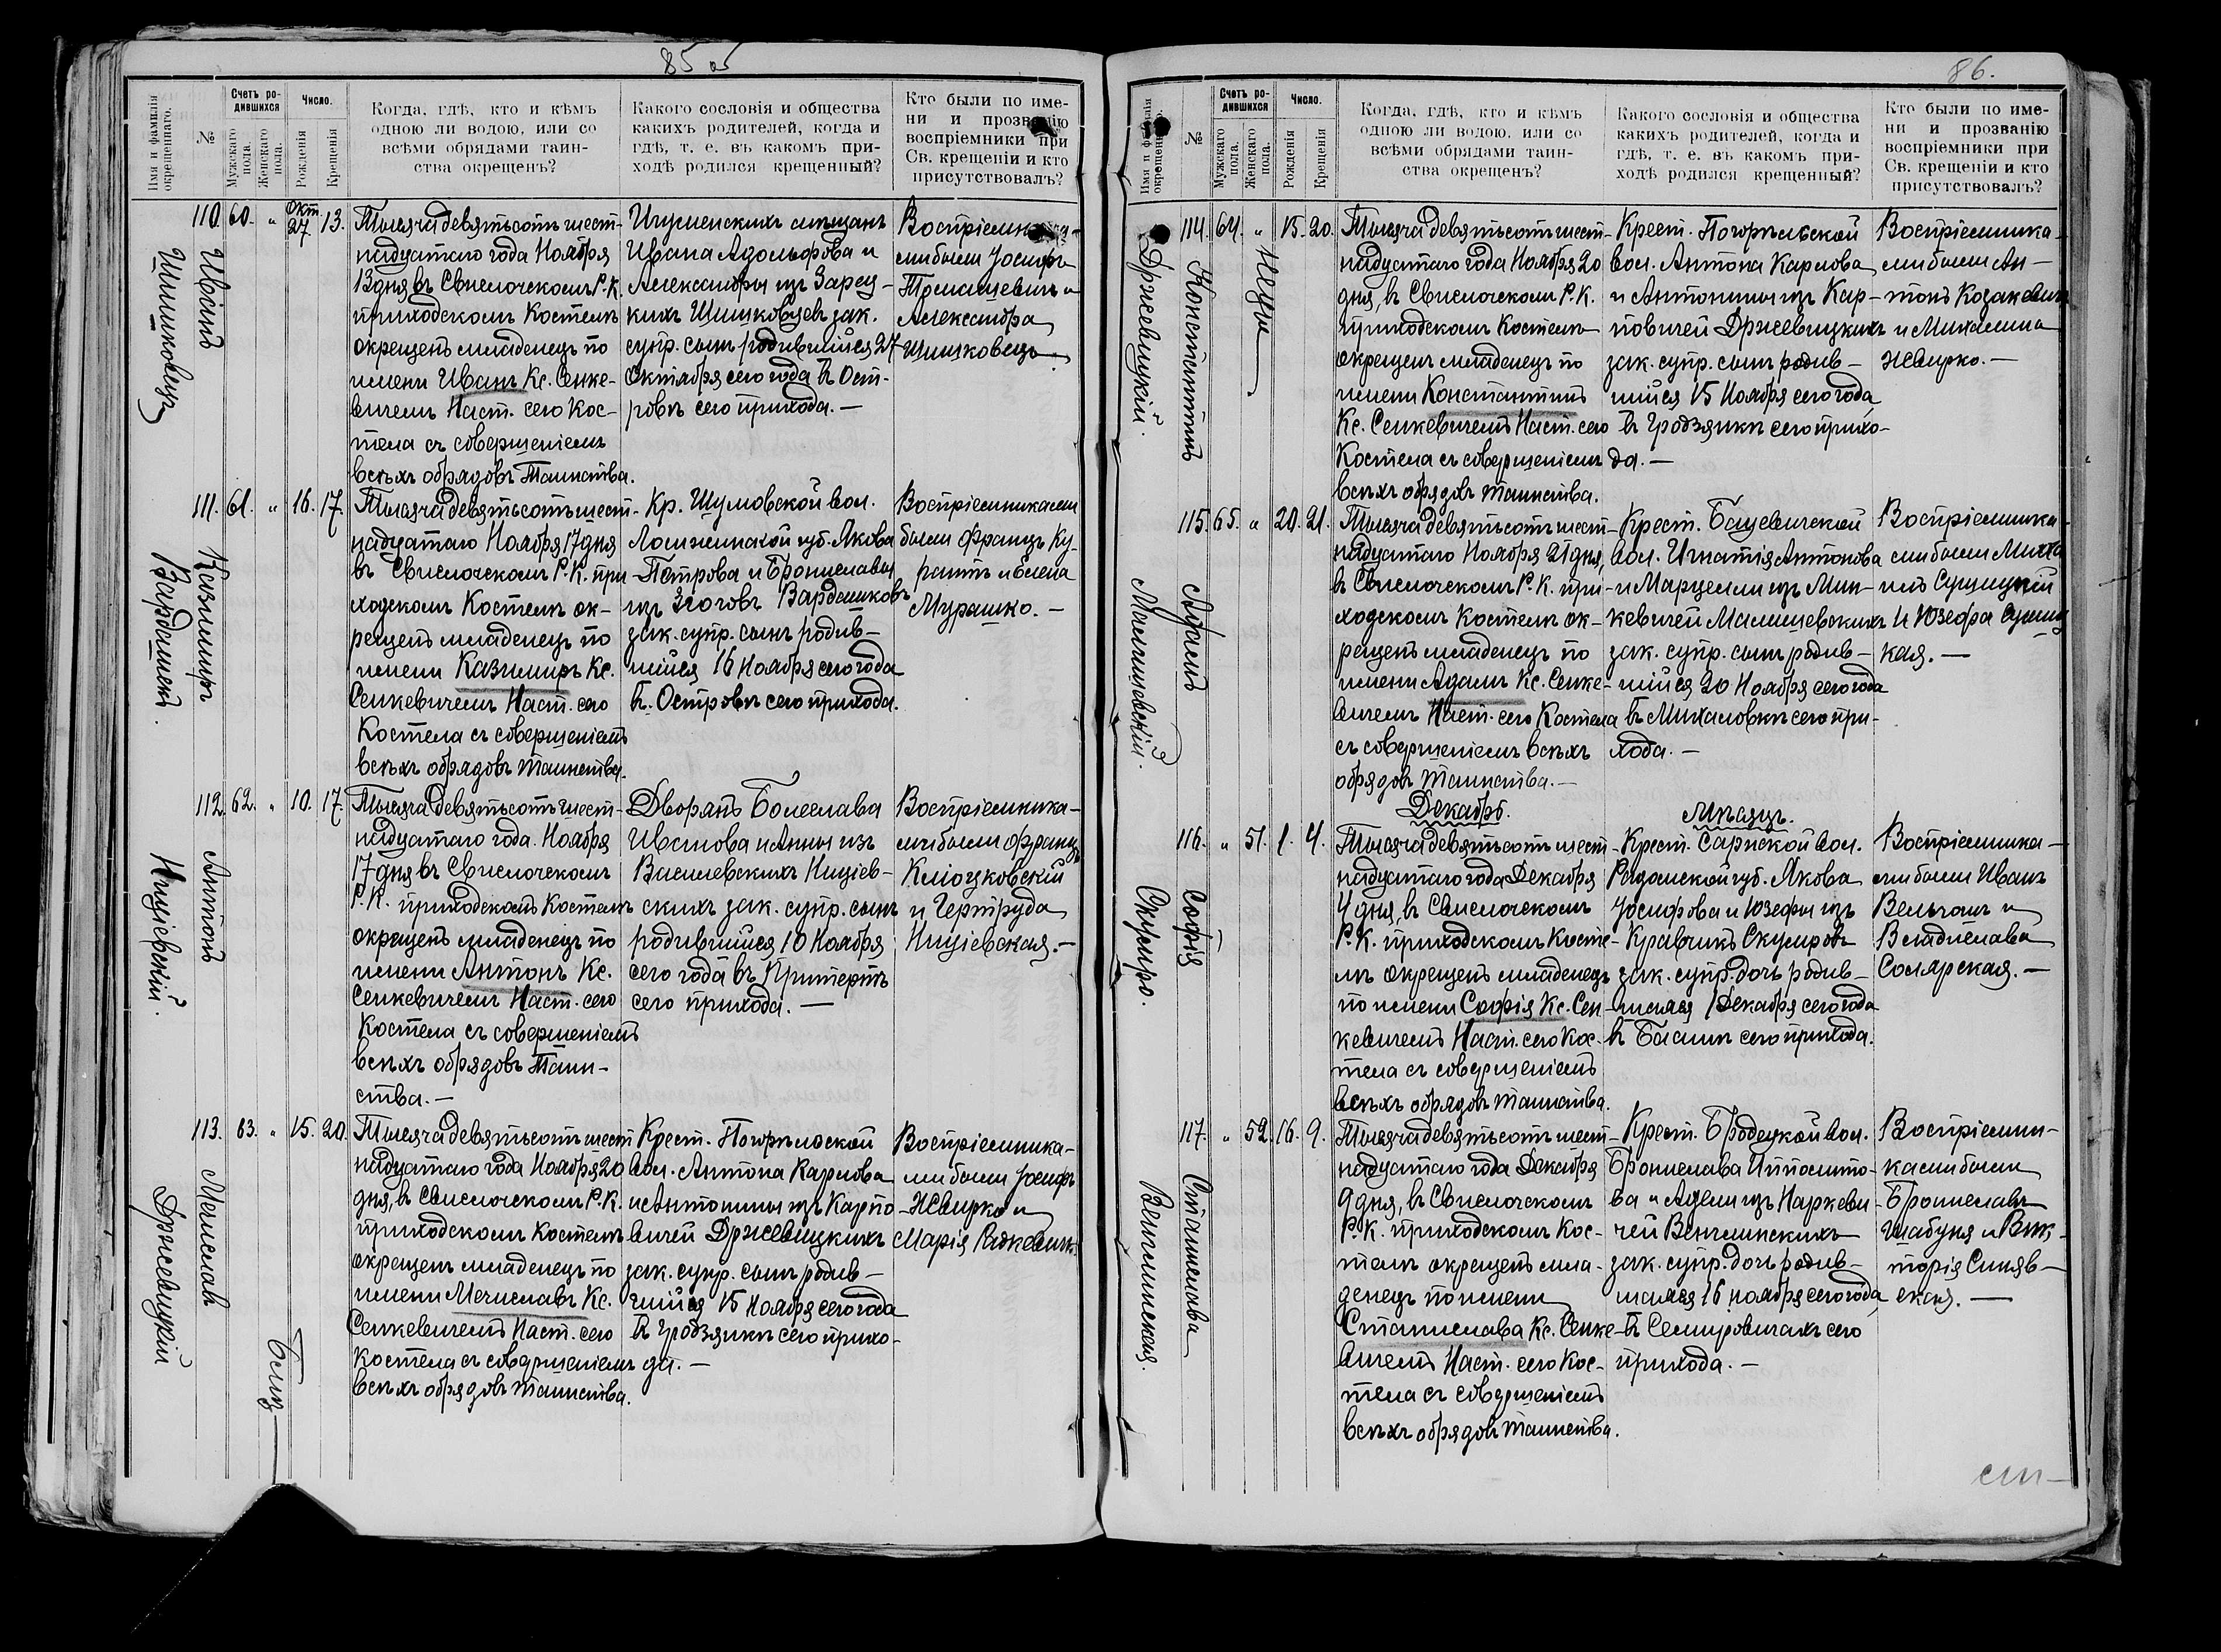 85 об
Имя и фамилія окрещеннаго.
№
Счетъ родившихся
Мужскаго пола.
Женскаго пола.
Число.
Рожденія
Крещенія
Когда, гдѣ, кто и кѣмъ
одною ли водою, или со
всѣми обрядами таин-
ства окрещенъ?
Какого сословія и общества
какихъ родителей, когда и
гдѣ, т. е. въ какомъ при-
ходѣ родился крещенный?
Кто были по име-
ни и прозванію
воспріемники при
Св. крещеніи и кто
присутствовалъ?
Иванъ
Шишковецъ
110. 60. " Окт. 27 13.
Тысяча девятьсотъ шест-
надцатаго года Ноября
13 дня въ Свислочскомъ Р. К.
приходскомъ Костелѣ
окрещенъ младенецъ по
имени Иванъ Кс. Сенке-
вичемъ Наст. сего Кос-
тела съ совершеніемъ
всѣхъ обрядовъ Таинства.
Игуменскихъ мѣщанъ
Ивана Адольфова и
Александры изъ Зарец-
кихъ Шишковцевъ зак.
супр. сынъ родившійся 27
Октября сего года въ Ост-
ровѣ сего прихода. —
Воспріемника-
ми были Іосифъ
Томашевичъ и
Александра
Шишковецъ
Казимиръ
Вардашекъ.
111. 61. " 16. 17.
Тысяча девятьсотъ шест-
надцатаго Ноября 17 дня
въ Свислочскомъ Р. К. при-
ходскомъ Костелѣ ок-
рещенъ младенецъ по
имени Казимиръ Кс.
Сенкевичемъ Наст. сего
Костела съ совершеніемъ
всѣхъ обрядовъ таинства.
Кр. Шумовской вол.
Ломжинской губ. Якова
Петрова и Брониславы
изъ Зюговъ Вардашковъ
зак. супр. сынъ родив-
шійся 16 Ноября сего года
въ Островѣ сего прихода.
Воспріемниками
были Францъ Ку-
рантъ и Елена
Мурашко. —
Антонъ
Ницiевскій.
112. 62. " 10. 17.
Тысяча девятьсотъ шест-
надцатаго года Ноября
17 дня въ Свислочскомъ
Р. К. приходскомъ Костелѣ
окрещенъ младенецъ по
имени Антонъ Кс.
Сенкевичемъ Наст. сего
Костела съ совершеніемъ
всѣхъ обрядовъ Таин-
ства. —
Дворянъ Болеслава
Иванова и Анны изъ
Василевскихъ Ниціев-
скихъ зак. супр. сынъ
родившійся 10 Ноября
сего года въ
сего прихода. —
Воспріемника-
ми были Францъ
Клюцковскій
и Гертруда
Ниціевская. —
Мечиславъ
Држевицкій
Близ-
113. 63. " 15. 20.
Тысяча девятьсотъ шест
надцатаго года Ноября 20
дня, въ Свислочскомъ Р. К.
приходскомъ Костелѣ
окрещенъ младенецъ по
имени Мечиславъ Кс.
Сенкевичемъ Наст. сего
Костела съ совершеніемъ
всѣхъ обрядовъ таинства.
Крест. Погорѣльской
вол. Антона Карлова
и Антонины изъ Карпо-
вичей Држевицкихъ
зак. супр. сынъ родив-
шійся 15 Ноября сего года
въ Гродзянкѣ сего прихо-
да. —
Воспріемника-
ми были Іосифъ
Жвирко и
Марія Радкевичъ.
86.
Имя и фамилія окрещеннаго.
№
Счетъ родившихся
Мужскаго пола.
Женскаго пола.
Число.
Рожденія
Крещенія
Когда, гдѣ, кто и кѣмъ
одною ли водою, или со
всѣми обрядами таин-
ства окрещенъ?
Какого сословія и общества
какихъ родителей, когда и
гдѣ, т. е. въ какомъ при-
ходѣ родился крещенный?
Кто были по име-
ни и прозванію
воспріемники при
Св. крещеніи и кто
присутствовалъ?
Константинъ
Држевицкій.
нецы
114. 64. " 15. 20.
Тысяча девятьсотъ шест-
надцатаго года Ноября 20
дня, въ Свислочскомъ Р. К.
приходскомъ Костелѣ
окрещенъ младенецъ по
имени Константинъ
Кс. Сенкевичемъ Наст. сего
Костела съ совершеніемъ
всѣхъ обрядовъ таинства.
Крест. Погорѣльской
вол. Антона Карлова
и Антонины изъ Кар-
повичей Држевицкихъ
зак. супр. сынъ родив-
шійся 15 Ноября сего года
въ Гродзянкѣ сего прихо-
да. —
Воспріемника-
ми были Ан-
тонъ Козакевичъ
и Михалина
Жвирко. —
Адамъ
Малишевскій.
115. 65. " 20. 21.
Тысяча девятьсотъ шест-
надцатаго Ноября 21 дня,
въ Свислочскомъ Р. К. при-
ходскомъ Костелѣ ок-
рещенъ младенецъ по
имени Адамъ Кс. Сенке-
вичемъ Наст. сего Костела
съ совершеніемъ всѣхъ
обрядовъ таинства. —
Крест. Бацевичской
вол. Игнатія Антонова
и Марцели изъ Мин-
кевичей Малишевскихъ
зак. супр. сынъ родив-
шійся 20 Ноября сего года
въ Михаловкѣ сего при-
хода. —
Воспріемника-
ми были Миха
илъ Сушицкій
и Юзефа Сушиц
кая. —
Декабрь. Мѣсяцъ.
Софія
Скумро.
116. " 51. 1. 4.
Тысяча девятьсотъ шест-
надцатаго года Декабря
4 дня, въ Свислочскомъ
Р. К. приходскомъ Косте-
лѣ окрещенъ младенецъ
по имени Софія Кс. Сен-
кевичемъ Наст. сего Кос-
тела съ совершеніемъ
всѣхъ обрядовъ таинства.
Крест. Сарнской вол.
Радомской губ. Якова
Іосифова и Юзефы изъ
Кравчикъ Скумровъ
зак. супр. дочь родив-
шаяся 1 Декабря сего года
въ сего прихода.
Воспріемника-
ми были Иванъ
и
Владислава
Солярская. —
Станислава
Венглинская.
117. " 52. 16. 9.
Тысяча девятьсотъ шест-
надцатаго года Декабря
9 дня, въ Свислочскомъ
Р. К. приходскомъ Кос-
телѣ окрещенъ мла-
денецъ по имени
Станислава Кс. Сенке-
вичемъ Наст. сего Кос-
тела съ совершеніемъ
всѣхъ обрядовъ таинства.
Крест. Бродецкой вол.
Бронислава Ипполито-
ва и Адели изъ Наркеви-
чей Венглинскихъ
зак. супр. дочь родив-
шаяся 16 Ноября сего года,
въ Семировичахъ сего
прихода. —
Воспріемни-
ками были
Брониславъ
Шабуня и Вик-
торія Синяв-
ская. —